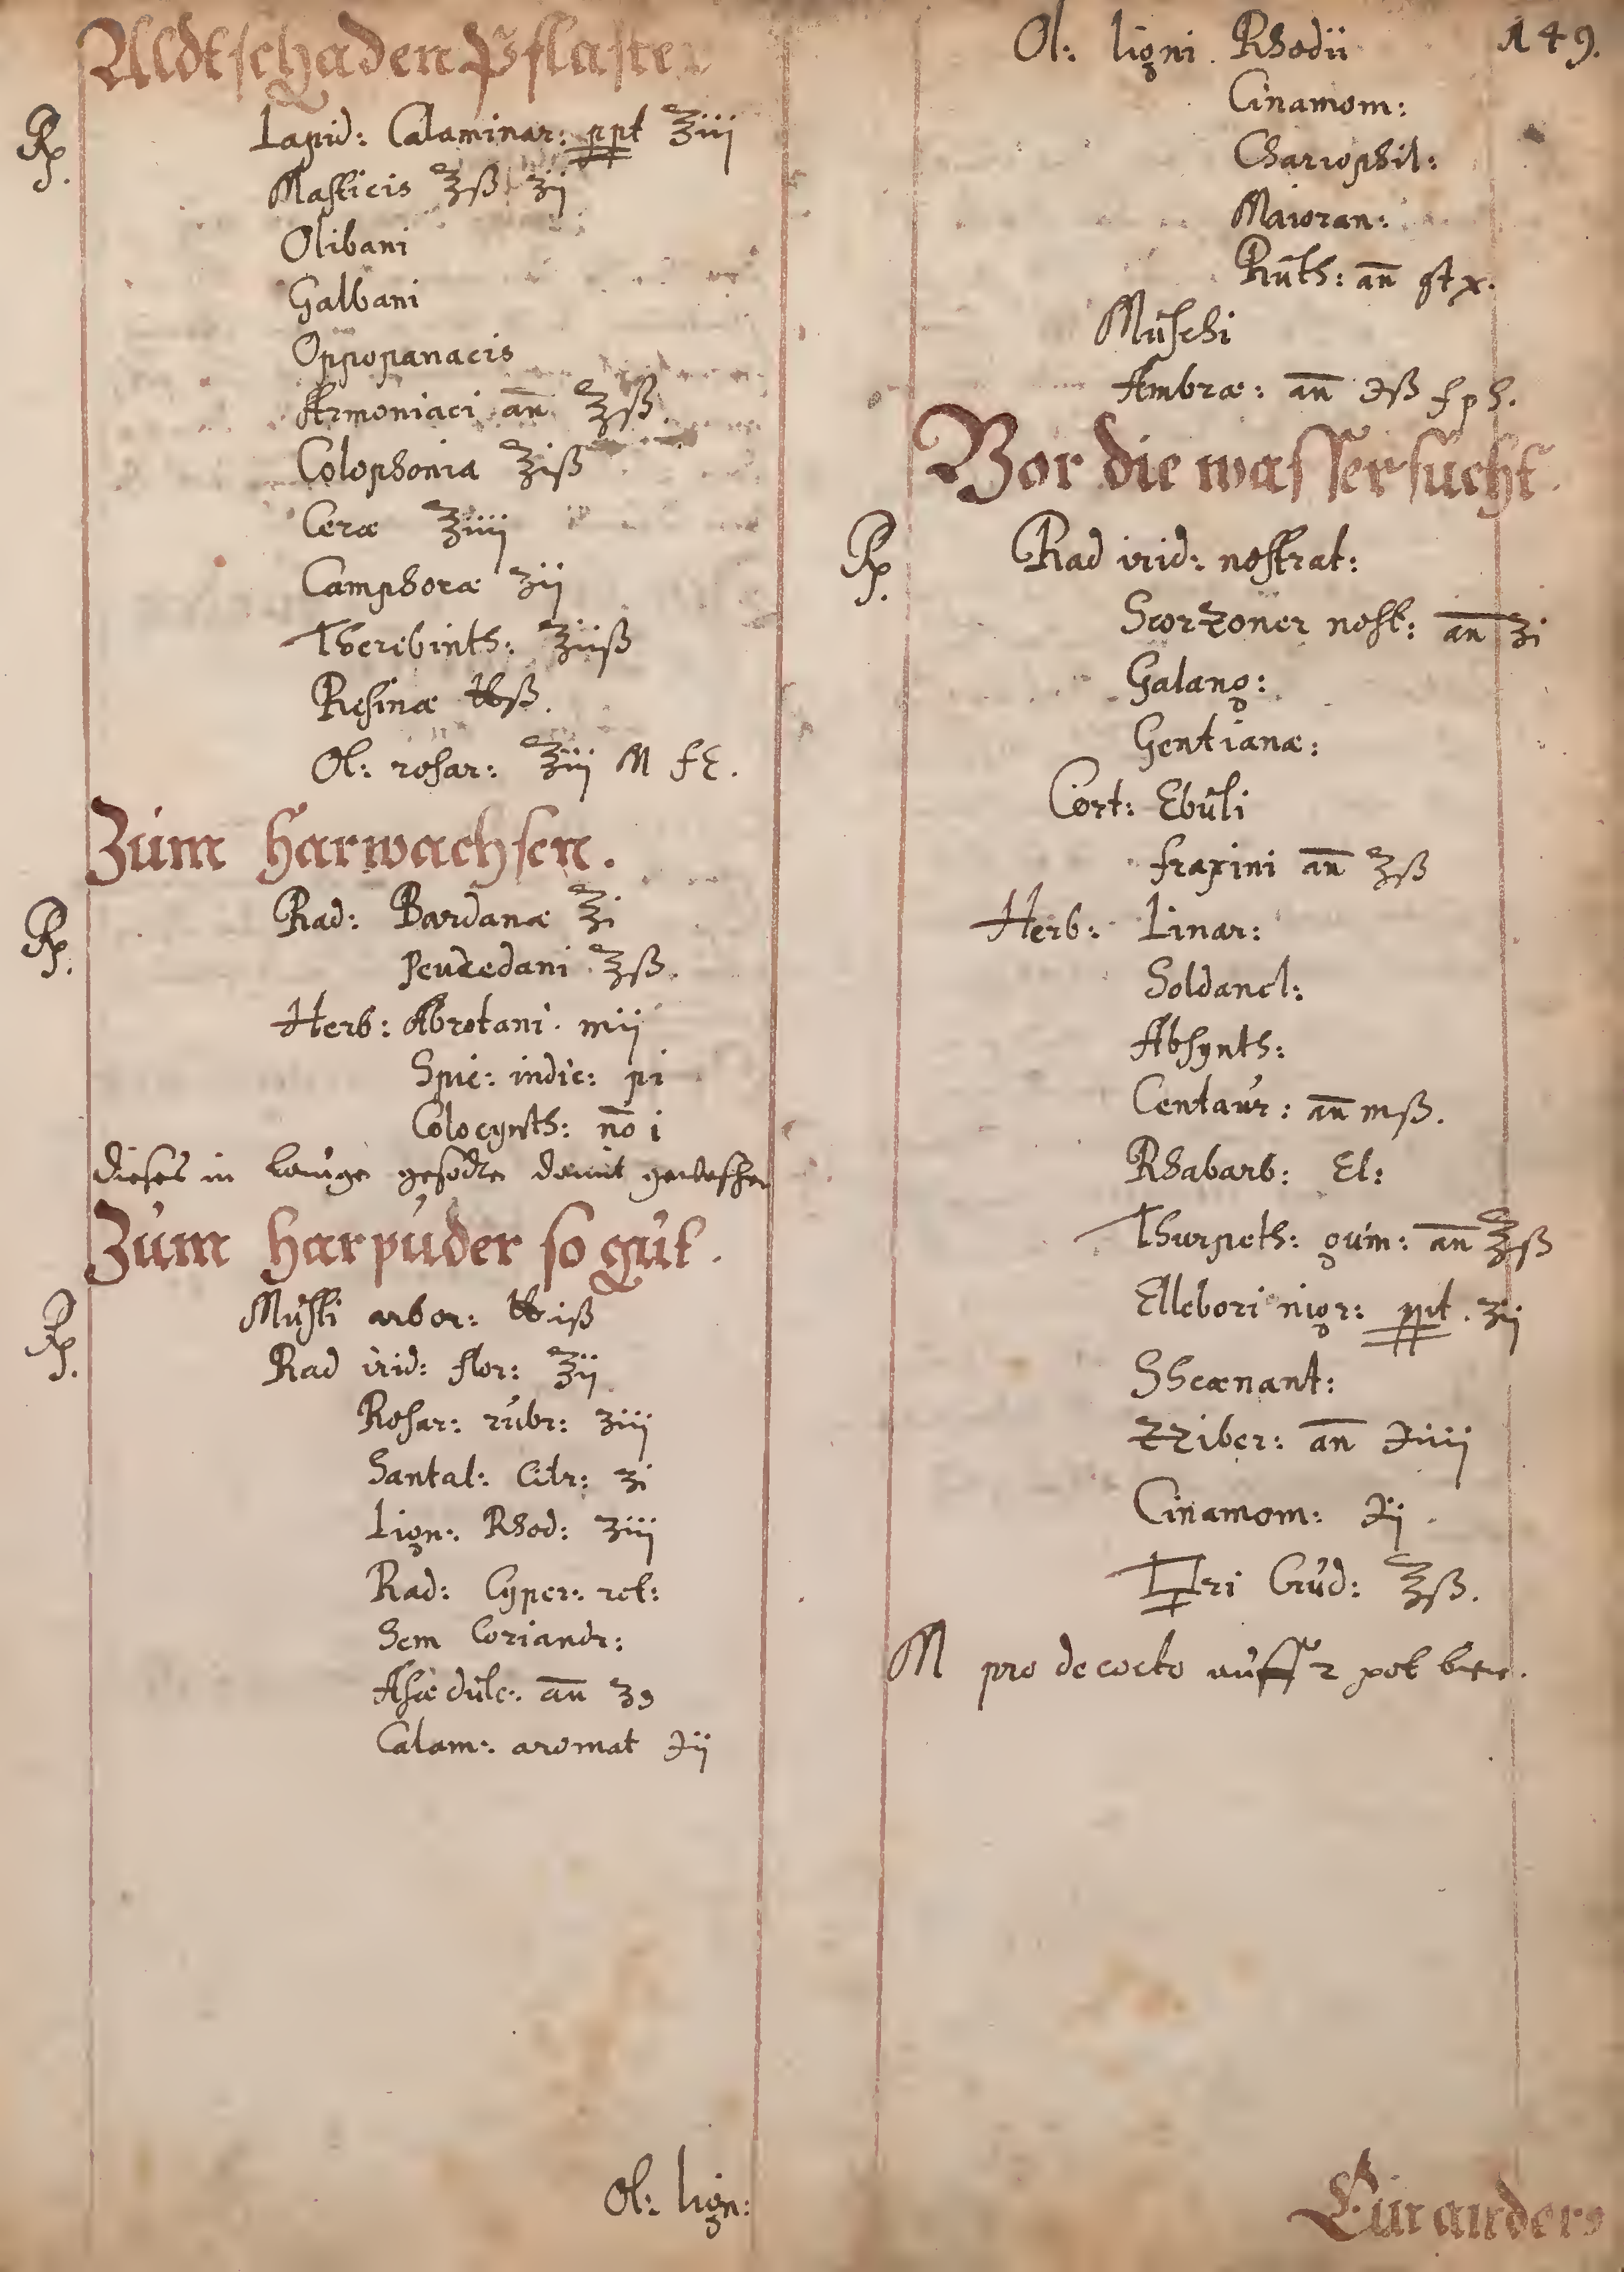 Aldtschaden Pflaster
Rp.
Lapid: Calaminar: ppt ℥iij
Masticis ℥ß ʒij
Olibani
Galbani
Oppopanacis
Armoniaci añ ℥ß
Colophonia ℥iß
Ceræ ℥iiij
Camphoræ ʒij
Theribinth: ℥iiß
Resinæ ℔ß.
Ol: rosar: ℥iij M f E.
Zum harwachsen.
Rp.
Rad: Bardanæ ℥i
Peucedani ℥ß.
Herb: Abrotani. mij
Spic: indic: pi
Colocynth: nō i
dieses in lauge gesodten damit gewaschen
Zum harpuder so gut.
Rp.
Musti arbor: ℔iß
Rad irid: flor: ℥ij
Rosar: rubr: ʒiij
Santal: Citr: ʒi
Lign: Rhod: ʒiij
Rad: Cyper: rot:
Sem Coriandr:
Asæ dulc: añ ʒß
Calam: aromat ℈ij
Ol: lign:
149.
Ol: ligni Rhodii
Cinamom:
Chariophil:
Maioran:
Ruth: añ gt x.
Muschi
Ambræ: añ ℈ß f p h.
Vor die wassersucht.
Rp.
Rad irid: nostrat:
Scorzoner nost: añ ʒi
Galang:
Gentianæ:
Cort: Ebuli
fraxini añ ℥ß
Herb: Linar:
Soldanel:
Absynth:
Centaur: añ mß.
Rhabarb: El:
Thurpeth: gum: añ ℥ß
Ellebori nigr: ppt. ʒij
Shcænant:
ZZiber: añ ℈iiij
Cinamom: ℈ij.
Tri Crud: ℥ß.
M pro decocto auff 2 pot bier.
Ein anders